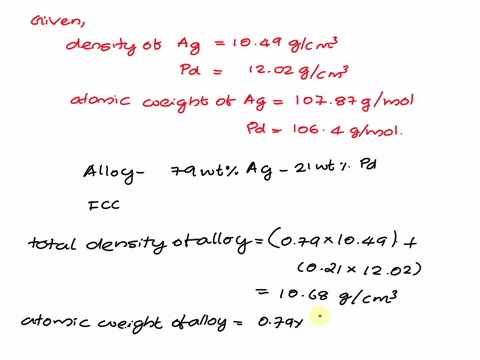 Given,
density of Ag = 10.49 g/cm³
Pd = 12.02 g/cm³
atomic weight of Ag = 107.87 g/mol
Pd = 106.4 g/mol.
Alloy- 79 wt% Ag - 21 wt% Pd
FCC
total density of alloy = (0.79 x 10.49) +
(0.21 x 12.02)
= 10.68 g/cm³
atomic weight of alloy = 0.79x